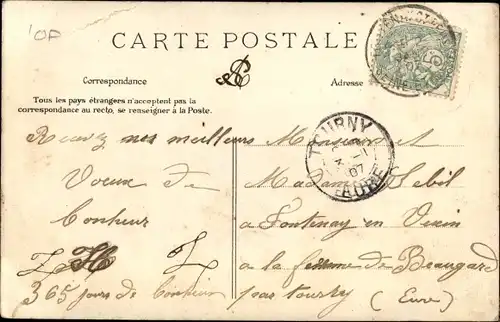 OP
CARTE POSTALE
Correspondance
Adresse
Tous les pays étrangers n'acceptent pas la
correspondance au recto, se renseigner à la Poste.
5
TOURNY
07
Recevez nos meilleurs
Voeux de
bonheur
365 jours de
Monsieur et
Madame Sebil
a Fontenay en Vexin
a la de Beauregard
par tourny (Eure)